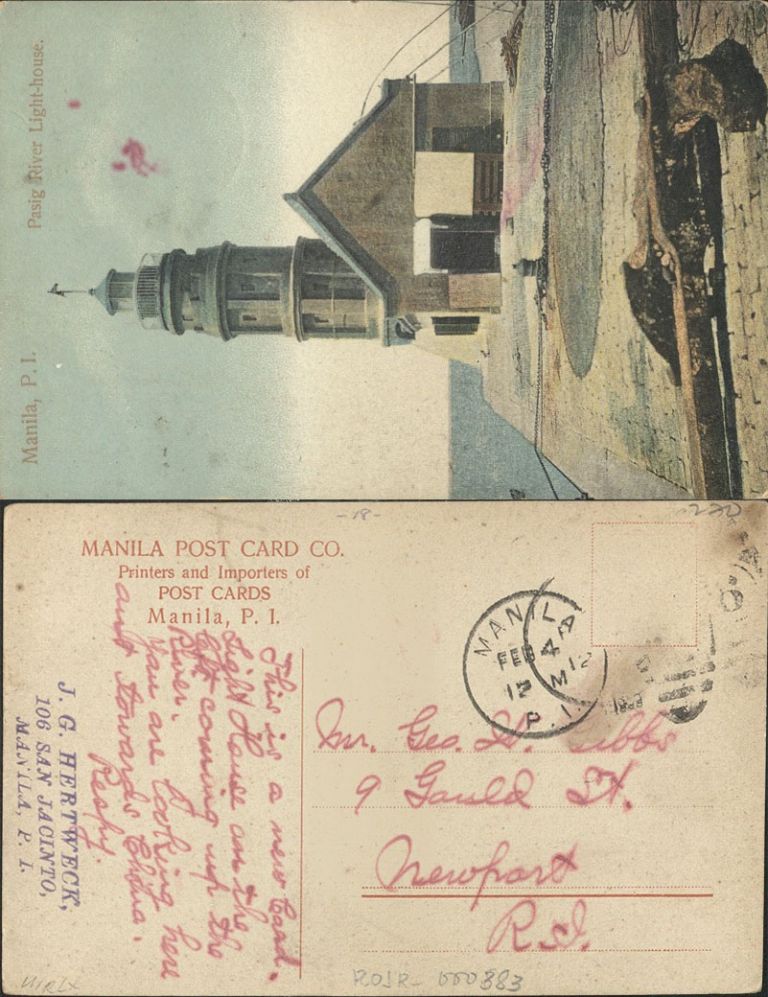 Pasig River Light-house.
Manila, P. I.
-18-
220
MANILA POST CARD CO.
Printers and Importers of
POST CARDS
Manila, P. I.
MANILA
FEB 4
4 A M
12
P. I.
This is a new Card.
Light House on the
left coming up the
River.
You are looking here
out towards China.
Respy.
J. G. HERTWECK,
106 SAN JACINTO,
MANILA, P. I.
Mr. Geo. W. Gibbs
9 Gould St.
Newport
R.I.
ROJR-000383